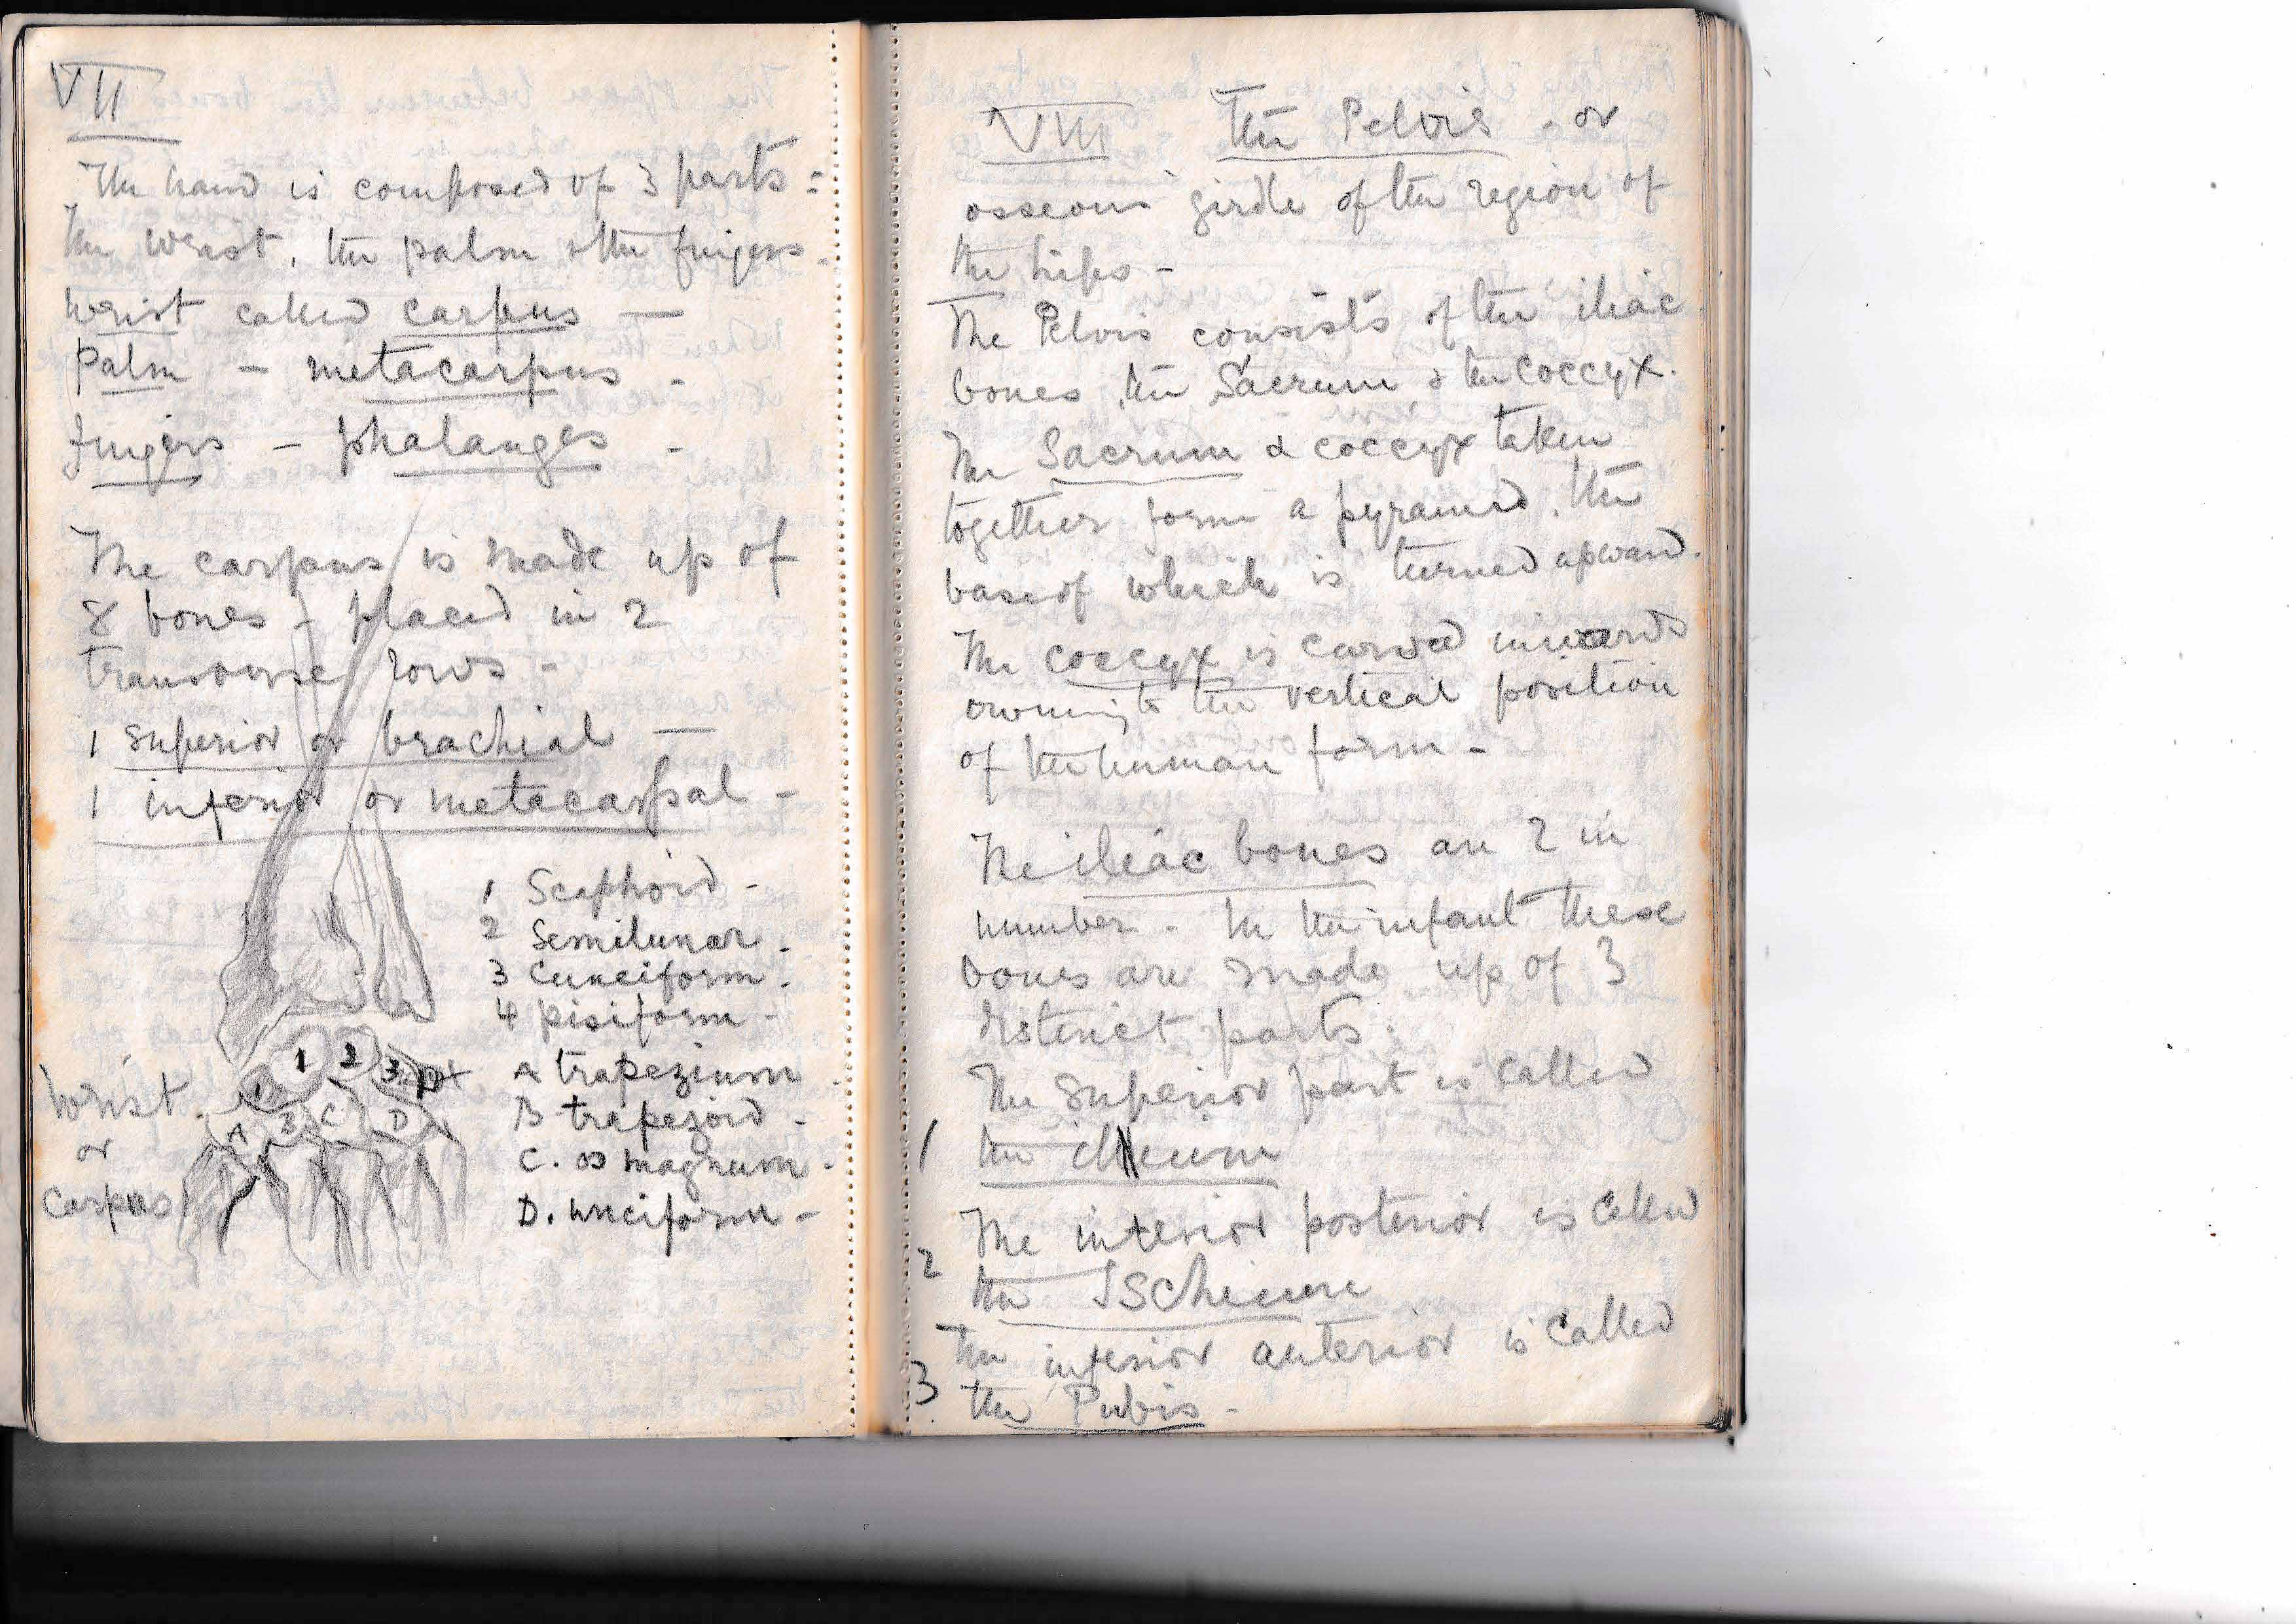 VII
The hand is composed of 3 parts:
the wrist, the palm & the fingers.
Wrist called carpus —
Palm – metacarpus -
fingers – phalanges -
The carpus is made up of
8 bones – placed in 2
transverse rows -
1 superior or brachial —
1 inferior or metacarpal -
1 Scaphoid -
2 Semilunar -
3 Cuneiform -
4 pisiform -
A trapezium -
B trapezoid -
C. os magnum -
D. unciform -
1 2 3
1
A B C D
Wrist
or
Carpus
VIII The Pelvis - or
osseous girdle of the region of
the hips -
The Pelvis consists of the iliac
bones, the Sacrum & the Coccyx.
The Sacrum & coccyx taken
together form a pyramid, the
base of which is turned upward.
The coccyx is curved inwards
owning to the vertical position
of the human form -
The iliac bones are 2 in
number - In the infant these
bones are made up of 3
distinct parts.
The superior part is called
1 the ilieum
The inferior posterior is called
2 the Ischieum
The inferior anterior is called
3 the Pubis -